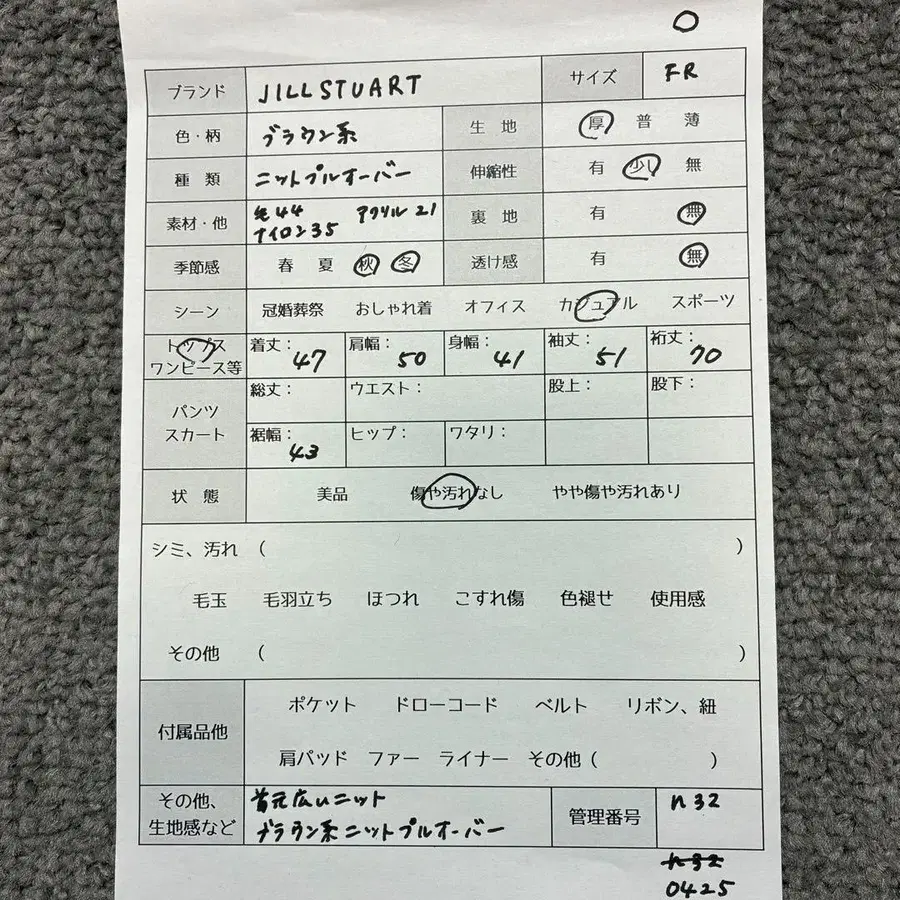 ブランド JILLSTUART サイズ FR
色・柄 ブラウン系 生地 厚 普 薄
種類 ニットプルオーバー 伸縮性 有 少し 無
素材・他 毛44 アクリル21
ナイロン35 裏地 有 無
季節感 春 夏 秋 冬 透け感 有 無
シーン 冠婚葬祭 おしゃれ着 オフィス カジュアル スポーツ
トップス
ワンピース等 着丈：47 肩幅：50 身幅：41 袖丈：51 裄丈：70
パンツ
スカート 総丈： ウエスト： 股上： 股下：
裾幅：43 ヒップ： ワタリ：
状態 美品 傷や汚れなし やや傷や汚れあり
シミ、汚れ （ ）
毛玉 毛羽立ち ほつれ こすれ傷 色褪せ 使用感
その他 （ ）
付属品他 ポケット ドローコード ベルト リボン、紐
肩パッド ファー ライナー その他（ ）
その他、
生地感など 首元広いニット
ブラウン系ニットプルオーバー 管理番号 n32
n32
0425